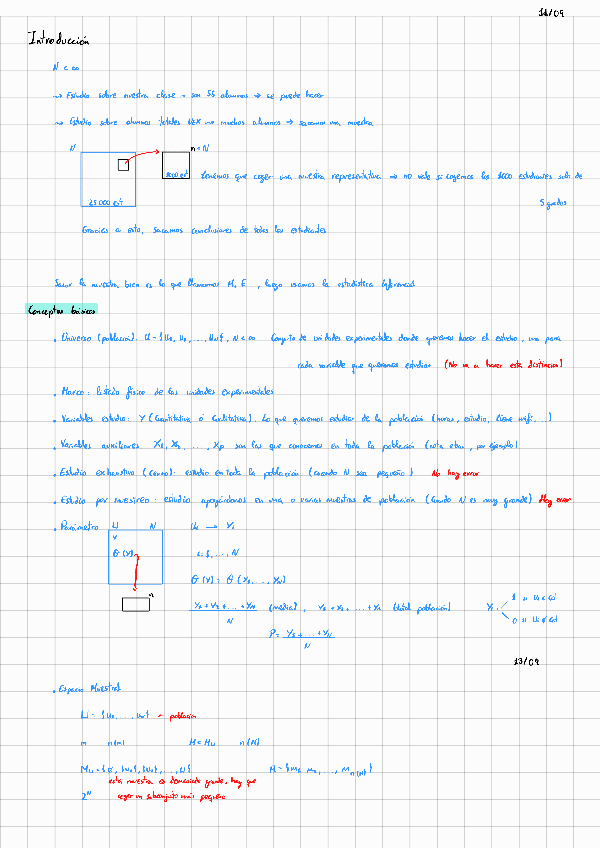 11/09
Introducción
N < ∞
→ Estudio sobre nuestra clase → son 55 alumnos → se puede hacer
→ Estudio sobre alumnos totales UEX → muchos alumnos → sacamos una muestra
N
n < N
1000 est
25 000 est
tenemos que coger una muestra representativa → no vale si cogemos los 1000 estudiantes solo de
5 grados
Gracias a esto, sacamos conclusiones de todos los estudiantes
Sacar la muestra bien es lo que llamamos M. E , luego usamos la estadística inferencial
Conceptos básicos
. Universo (población): U = {u₁, u₂, ..., u_N}, N < ∞ Conjunto de unidades experimentales donde queremos hacer el estudio, una para
cada variable que queramos estudiar (No va a hacer esta distinción)
. Marco: listado físico de las unidades experimentales
. Variables estudio: Y (Cuantitativa ó Cualitativa). Lo que queremos estudiar de la población (horas, estudio, tiene wifi, ...)
. Variables auxiliares X₁, X₂, ..., Xp son las que conocemos en toda la población (nota ebau, por ejemplo)
. Estudio exhaustivo (censo): estudio en toda la población (cuando N sea pequeño) No hay error
. Estudio por muestreo: estudio apoyándonos en una o varias muestras de población (Cuando N es muy grande) Hay error
. Parámetro U N Uᵢ → Yᵢ
Y
θ (Y) i = 1, ..., N
θ (Y) : θ (Y₁, ..., Y_N)
n
Y₁ + Y₂ + ... + Y_N / N (media), Y₁ + Y₂ + ... + Y_N (total población) Yᵢ 1 si Uᵢ ∈ 0 si Uᵢ ∉
P = Y₁ + ... + Y_N / N
13/09
. Espacio Muestral
U = {u₁, ..., u_N} → población
m n(m) M = M_U n(M)
M_U = {∅, {u₁}, {u₂}, ..., U} M = {m₁, m₂, ..., m_n(M)}
esta muestra es demasiado grande, hay que
2ᴺ coger un subconjunto más pequeño